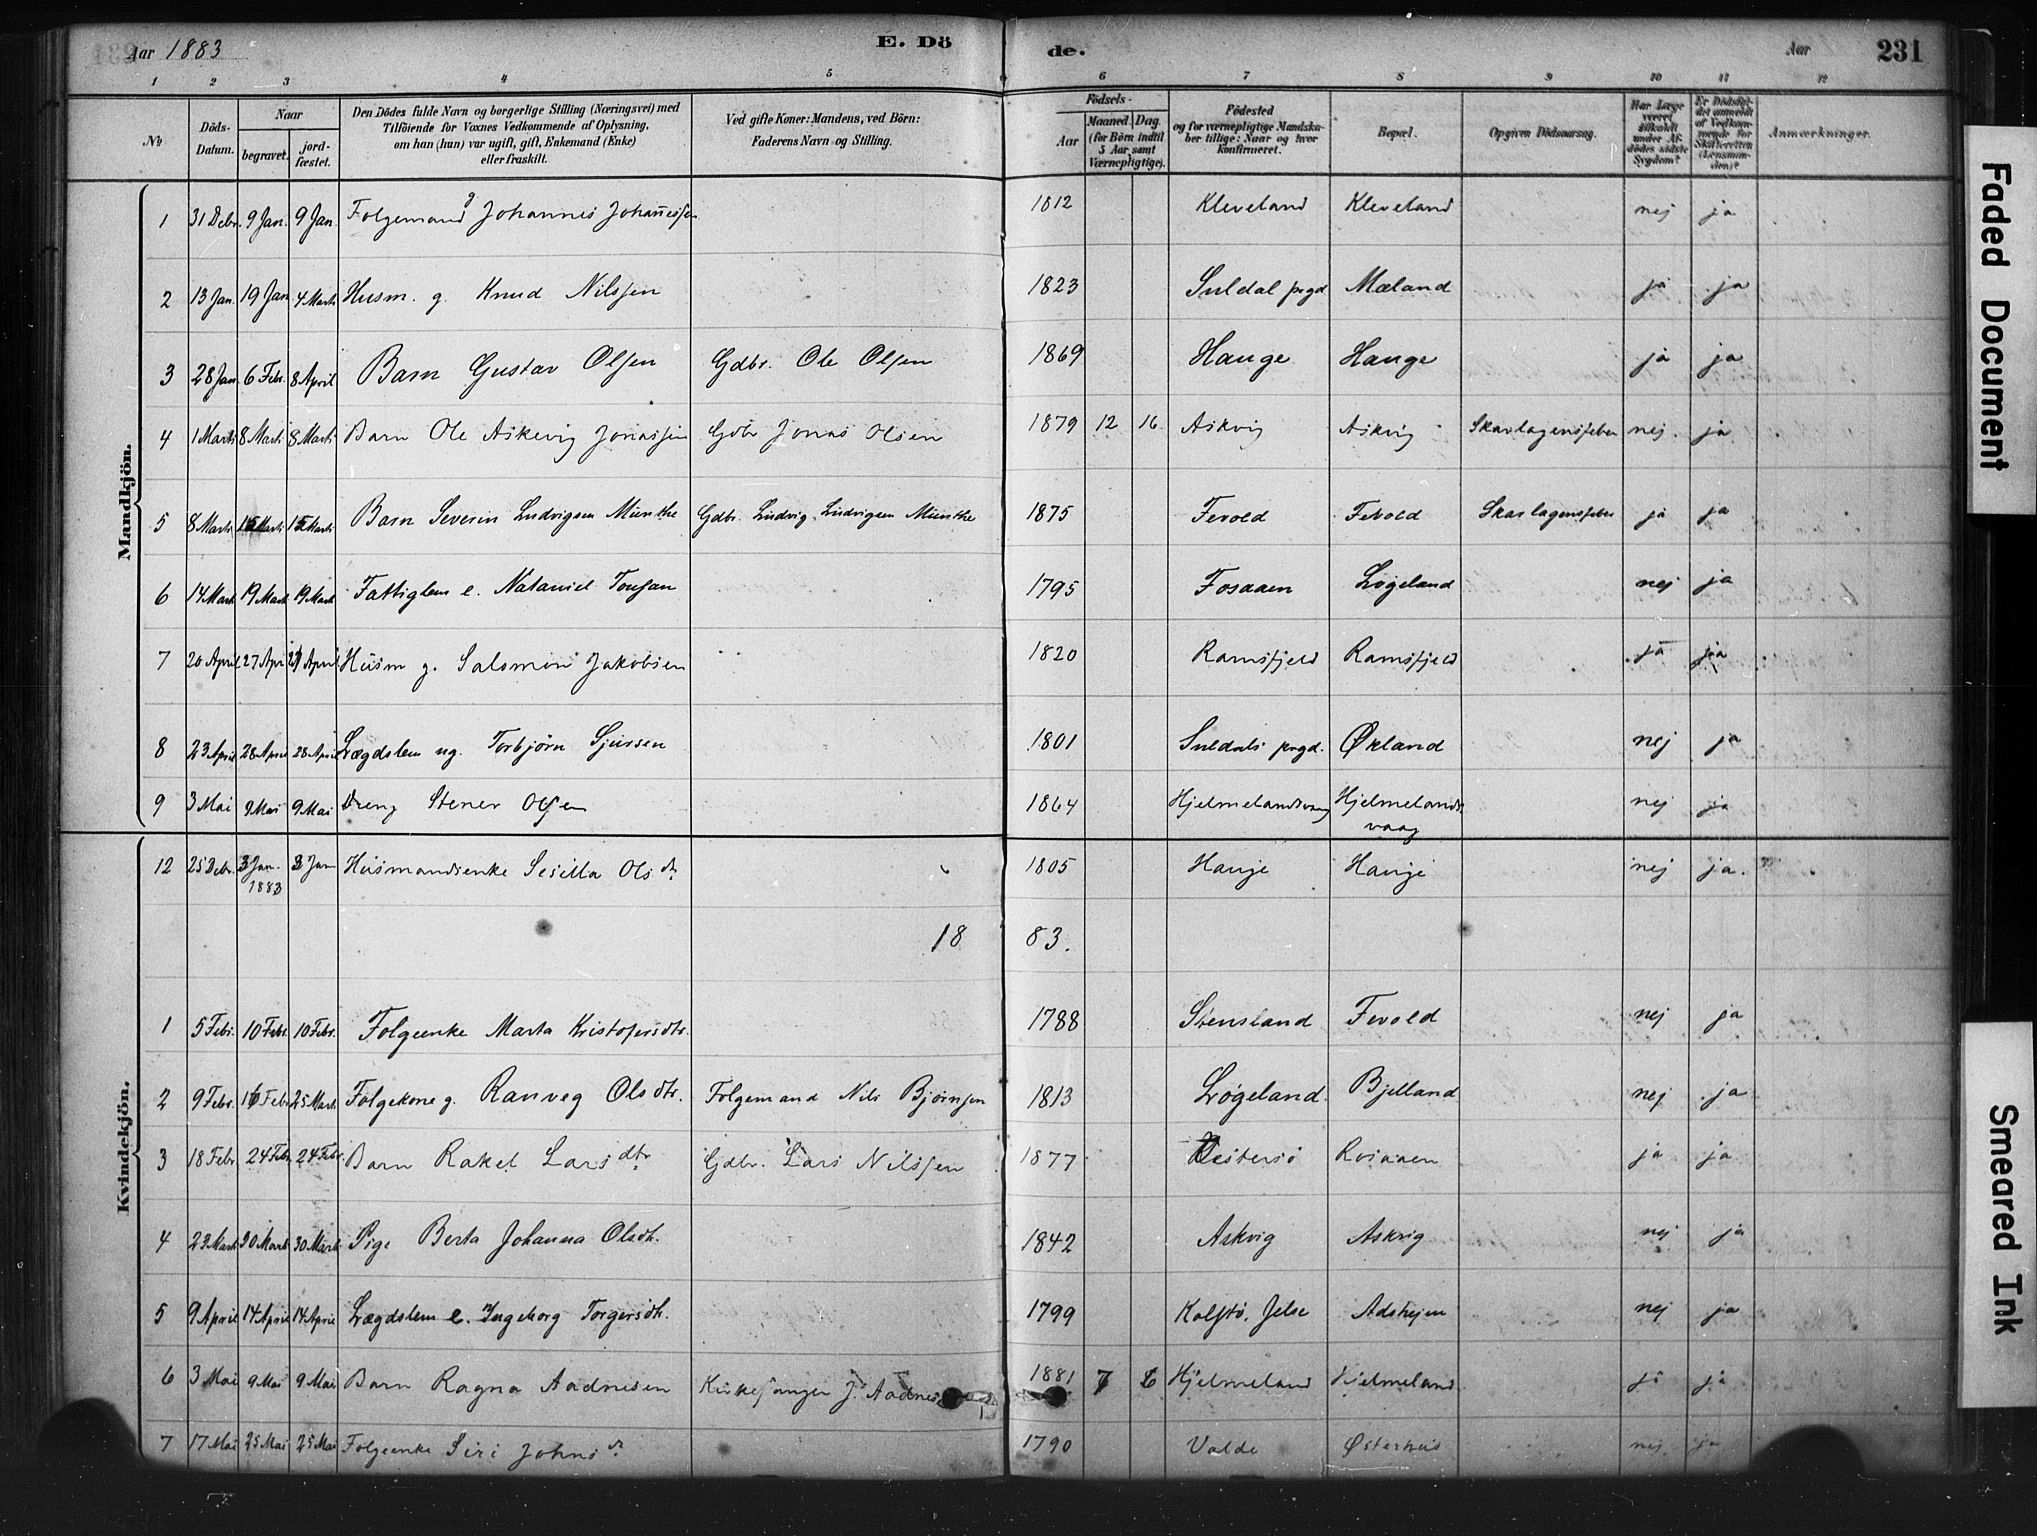 Aar 1883
E. Dö
de.
Aar
231
1 2 3 4 5 6 7 8 9 10 11 12
No
Döds-Datum.
Naar
begravet.
jord-fæstet.
Den Dödes fulde Navn og borgerlige Stilling (Næringsvei) med
Tilföiende for Voxnes Vedkommende af Oplysning,
om han (hun) var ugift, gift, Enkemand (Enke)
eller fraskilt.
Ved gifte Koner: Mandens, ved Börn:
Faderens Navn og Stilling.
Födsels-
Aar
Maaned. Dag.
(for Börn indtil
5 Aar samt
Værnepligtige).
Födested
og for værnepligtige Mandska-
ber tillige: Naar og hvor
konfirmeret.
Bopæl.
Opgiven Dödsaarsag.
Har Læge
været
tilkaldt
under Af-
dödes sidste
Sygdom?
Er Dödsfal-
det anmeldt
af Vedkom-
mende for
Skifteretten
(Lensman-
den)?
Anmærkninger.
Mandkjön.
1 31 Debr. 9 Jan. 9 Jan. Folgemand g Johannes Johannessen 1812 Kleveland Kleveland nej ja
2 13 Jan. 19 Jan. 4 Marts Husm. g. Knud Nilssen 1823 Suldal prgd Mæland ja ja
3 28 Jan. 6 Febr. 8 April Barn Gustav Olsen Gdbr. Ole Olsen 1869 Hauge Hauge ja ja
4 1 Marts 8 Marts 8 Marts Barn Ole Askevig Jonassen Gdbr Jonas Olsen 1879 12 16 Askvig Askvig Skarlagensfeber nej ja
5 8 Marts 15 Marts 15 Marts Barn Severin Ludvigsen Munthe Gdbr. Ludvig Ludvigsen Munthe 1875 Fevold Fevold Skarlagensfeber ja ja
6 14 Marts 19 Marts 19 Marts Fattiglem e. Nataniel 1795 Fosaaen Løgeland nej ja
7 20 April 27 Apr 27 April Husm g. Salomon Jakobsen 1820 Ramsfjeld Ramsfjeld ja ja
8 23 April 28 April 28 April Lægdslem ug. Torbjørn Sjursen 1801 Suldals prgd. Økland nej ja
9 3 Mai 9 Mai 9 Mai Dreng Stener Olsen 1864 Hjelmelandsvaag Hjelmelands
vaag nej ja
Kvindekjön.
12 25 Debr. 3 Jan. 3 Jan Husmandsenke Sesilla Olsdtr 1805 Hauge Hauge nej ja.
1883
18 83.
1 5 Febr. 10 Febr. 10 Febr. Folgeenke Marta Kristofersdtr. 1788 Stensland Fevold nej ja
2 9 Febr. 16 Febr 25 Marts Folgekone g. Ranveg Olsdtr. Folgemand Nils Bjørnsen 1813 Løgeland Bjelland nej ja
3 18 Febr 24 Febr 24 Febr. Barn Rakel Larsdtr Gdbr. Lars Nilssen 1877 Vestersø ja ja
4 23 Marts 30 Marts 30 Marts Pige Berta Johanna Olsdtr. 1842 Askvig Askvig nej ja
5 9 April 14 April 14 April Lægdslem e. Ingeborg Torgersdtr. 1799 Kolstø, Jelse nej ja
6 3 Mai 9 Mai 9 Mai Barn Ragna Aadnesen Kirkesanger J. 1881 7 Hjelmeland Hjelmeland ja ja
7 17 Mai 25 Mai 25 Mai Folgeenke Siri Johnsdr 1790 Valde Østerhus nej ja
Faded Document
Smeared Ink